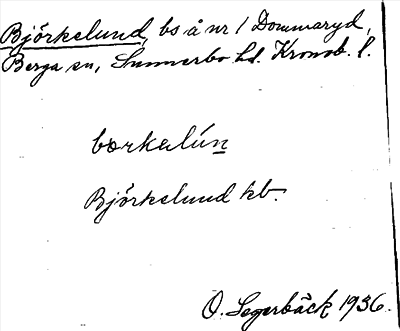 Björkelund, bs å nr 1 Dommaryd,
Berga sn, Sunnerbo hd. Kronob. l.
bœrkalún
Björkelund kb.
O. Segerbäck 1936.